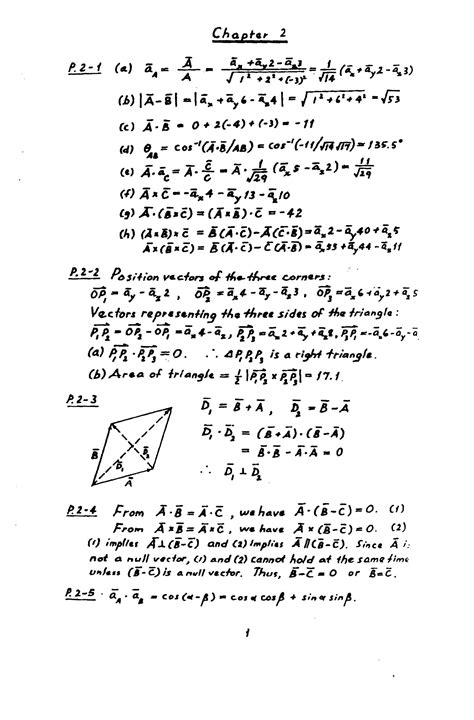 Chapter 2
P.2-1 (a) ā_A = Ā/A = (ā_x + ā_y2 − ā_z3)/√(1² + 2² + (−3)²) = 1/√14 (ā_x + ā_y2 − ā_z3)
(b) |Ā−B̄| = |ā_x + ā_y6 − ā_z4| = √(1² + 6² + 4²) = √53
(c) Ā·B̄ = 0 + 2(−4) + (−3) = −11
(d) θ_AB = cos⁻¹(Ā·B̄/AB) = cos⁻¹(−11/√14√17) = 135.5°
(e) Ā·ā_C = Ā·C̄/C = Ā·1/√29 (ā_x5 − ā_z2) = 11/√29
(f) Ā×C̄ = −ā_x4 − ā_y13 − ā_z10
(g) Ā·(B̄×C̄) = (Ā×B̄)·C̄ = −42
(h) (Ā×B̄)×C̄ = B̄(Ā·C̄) − Ā(C̄·B̄) = ā_x2 − ā_y40 + ā_z5
Ā×(B̄×C̄) = B̄(Ā·C̄) − C̄(Ā·B̄) = ā_x55 + ā_y44 − ā_z11
P.2-2 Position vectors of the three corners:
OP₁ = ā_y − ā_z2 , OP₂ = ā_x4 − ā_y − ā_z3 , OP₃ = ā_x6 + ā_y2 + ā_z5
Vectors representing the three sides of the triangle:
P₁P₂ = OP₂ − OP₁ = ā_x4 − ā_y2 − ā_z, P₂P₃ = ā_x2 + ā_y3 + ā_z8, P₃P₁ = −ā_x6 − ā_y − ā
(a) P₁P₂ · P₂P₃ = 0. ∴ ΔP₁P₂P₃ is a right triangle.
(b) Area of triangle = ½ |P₁P₂ × P₂P₃| = 17.1
P.2-3
D̄₁ = B̄ + Ā , D̄₂ = B̄ − Ā
D̄₁ · D̄₂ = (B̄ + Ā) · (B̄ − Ā)
= B̄·B̄ − Ā·Ā = 0
∴ D̄₁ ⊥ D̄₂
B̄ D̄₁ D̄₂
Ā
P.2-4 From Ā·B̄ = Ā·C̄ , we have Ā·(B̄−C̄) = 0. (1)
From Ā×B̄ = Ā×C̄ , we have Ā×(B̄−C̄) = 0. (2)
(1) implies Ā⊥(B̄−C̄) and (2) implies Ā∥(B̄−C̄). Since Ā i
not a null vector, (1) and (2) cannot hold at the same time
unless (B̄−C̄) is a null vector. Thus, B̄−C̄ = 0 or B̄=C̄.
P.2-5 · ā_A · ā_B = cos(α−β) = cosα cosβ + sinα sinβ.
1